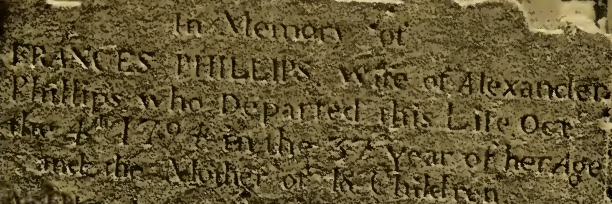 In Memory of
FRANCES PHILLIPS Wife of Alexander
Phillips who Departed this Life Oct
the 4th in the 37 Year of her Age
and the Mother of Children